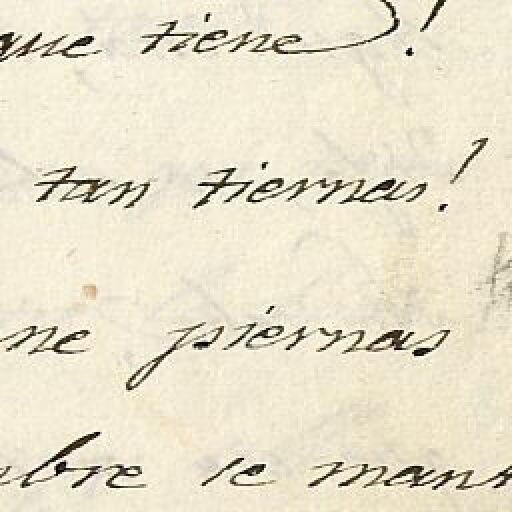 que tiene!
tan tiernas!
ne piernas
mbre se mant